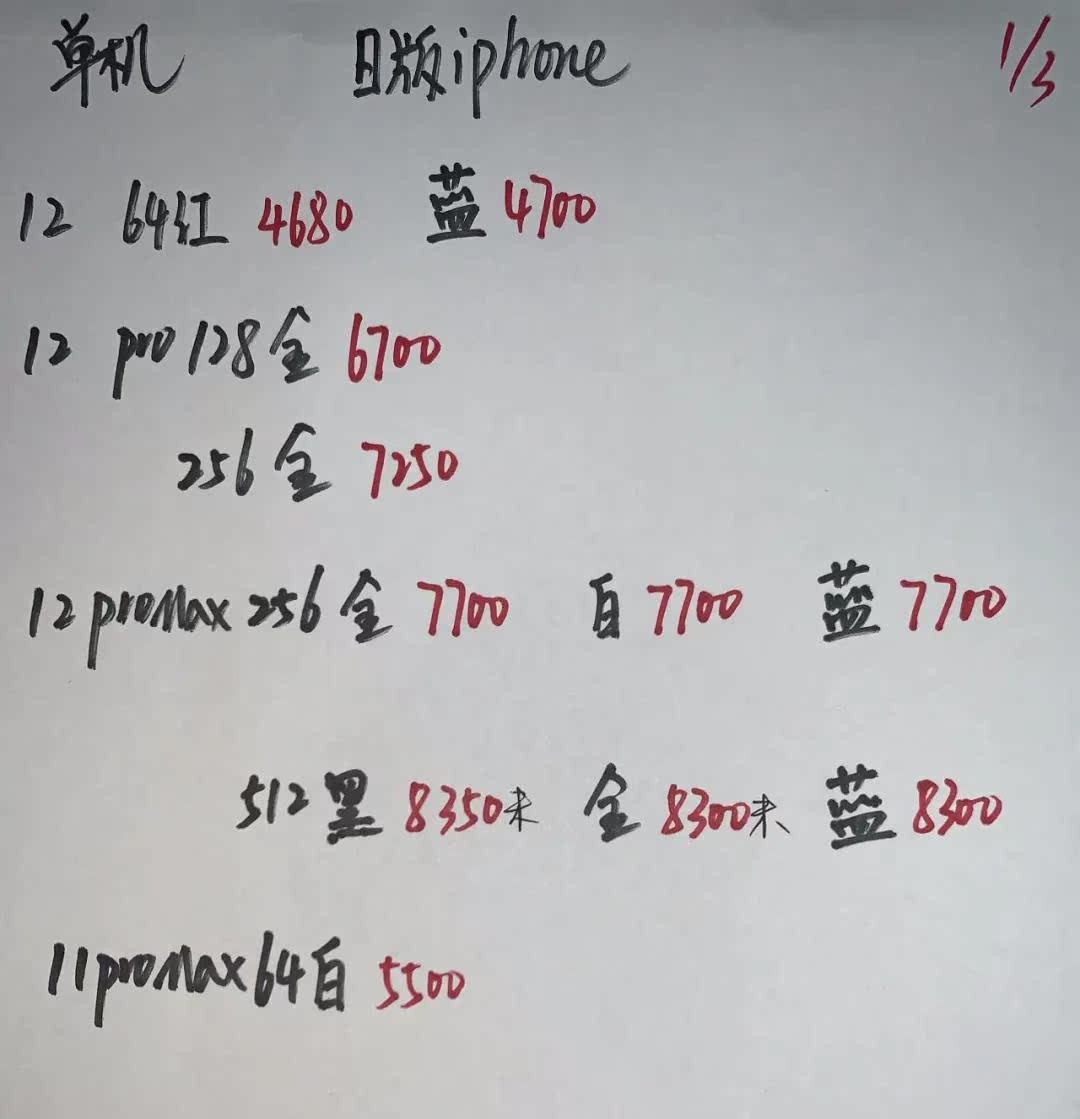 单机 日版iphone 1/3
12 64红 4680 蓝 4700
12 pro 128金 6700
256金 7250
12promax 256金 7700 白 7700 蓝 7700
512黑 8350未 金 8300未 蓝 8300
11promax64白 5500